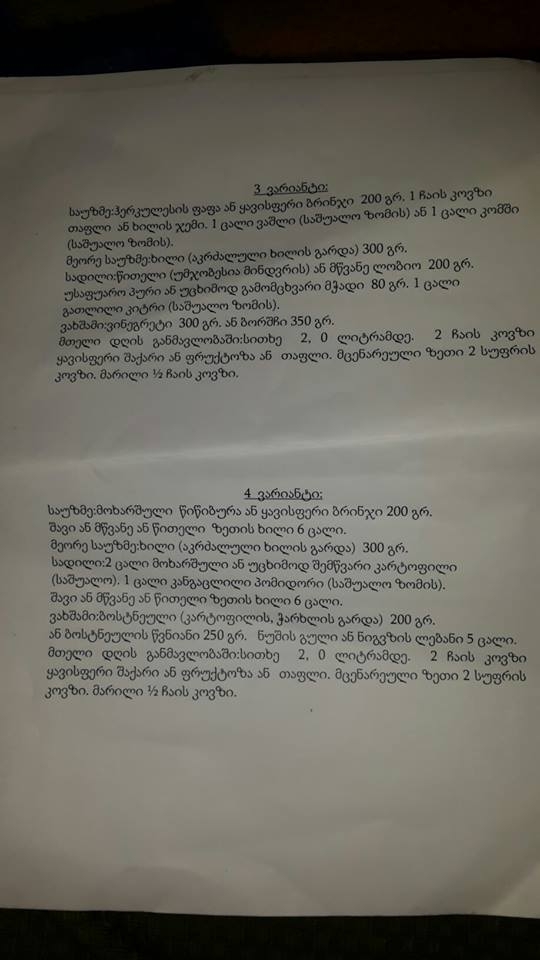 3 ვარიანტი:
საუზმე:ჰერკულესის ფაფა ან ყავისფერი ბრინჯი 200 გრ. 1 ჩაის კოვზი
თაფლი ან ხილის ჯემი. 1 ცალი ვაშლი (საშუალო ზომის) ან 1 ცალი კომში
(საშუალო ზომის).
მეორე საუზმე:ხილი (აკრძალული ხილის გარდა) 300 გრ.
სადილი:წითელი (უმჯობესია მინდვრის) ან მწვანე ლობიო 200 გრ.
უსაფუარო პური ან უცხიმოდ გამომცხვარი მჭადი 80 გრ. 1 ცალი
გათლილი კიტრი (საშუალო ზომის).
ვახშამი:ვინეგრეტი 300 გრ. ან ბორშჩი 350 გრ.
მთელი დღის განმავლობაში:სითხე 2, 0 ლიტრამდე. 2 ჩაის კოვზი
ყავისფერი შაქარი ან ფრუქტოზა ან თაფლი. მცენარეული ზეთი 2 სუფრის
კოვზი. მარილი ½ ჩაის კოვზი.
4 ვარიანტი:
საუზმე:მოხარშული წიწიბურა ან ყავისფერი ბრინჯი 200 გრ.
შავი ან მწვანე ან წითელი ზეთის ხილი 6 ცალი.
მეორე საუზმე:ხილი (აკრძალული ხილის გარდა) 300 გრ.
სადილი:2 ცალი მოხარშული ან უცხიმოდ შემწვარი კარტოფილი
(საშუალო). 1 ცალი კანგაცლილი პომიდორი (საშუალო ზომის).
შავი ან მწვანე ან წითელი ზეთის ხილი 6 ცალი.
ვახშამი:ბოსტნეული (კარტოფილის, ჭარხლის გარდა) 200 გრ.
ან ბოსტნეულის წვნიანი 250 გრ. ნუშის გული ან ნიგვზის ლებანი 5 ცალი.
მთელი დღის განმავლობაში:სითხე 2, 0 ლიტრამდე. 2 ჩაის კოვზი
ყავისფერი შაქარი ან ფრუქტოზა ან თაფლი. მცენარეული ზეთი 2 სუფრის
კოვზი. მარილი ½ ჩაის კოვზი.